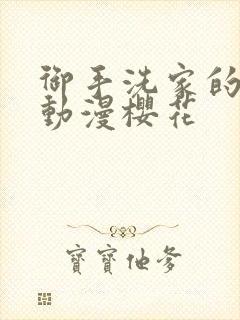 御手洗家的
動漫櫻花
寶寶他爹